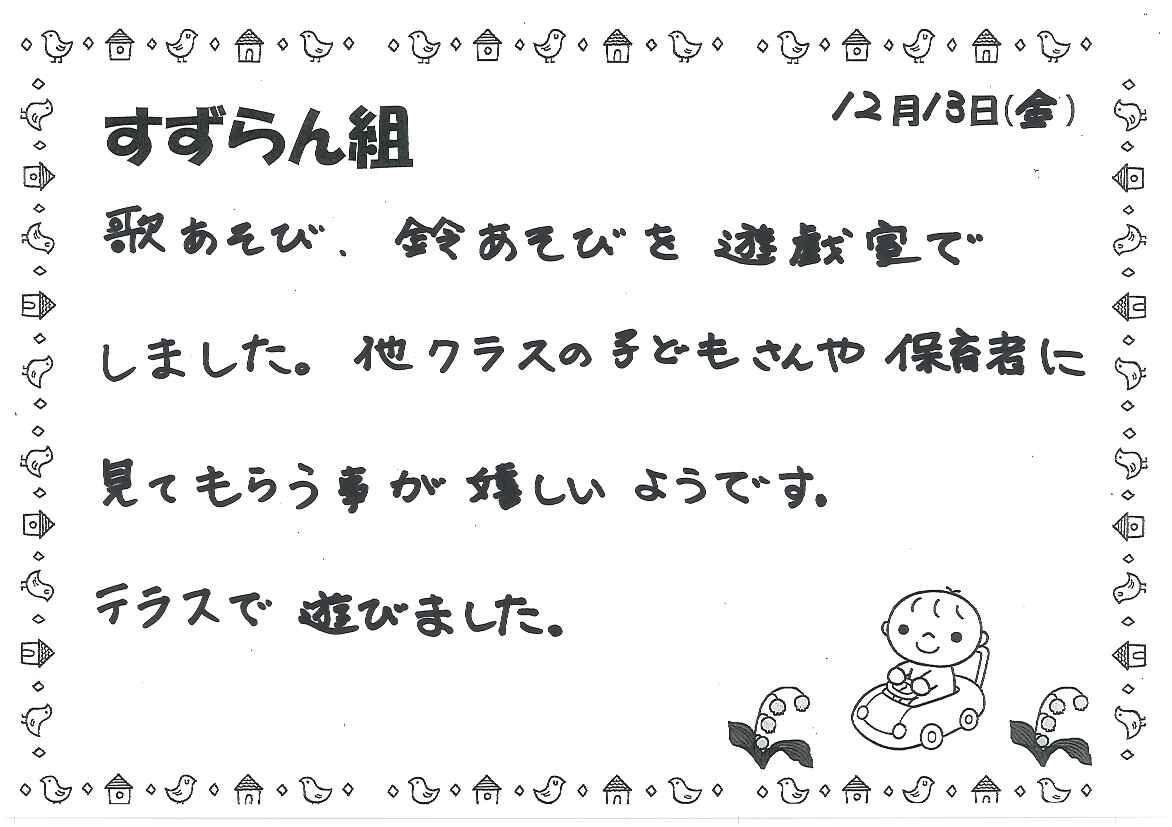 12月13日(金)
すずらん組
歌あそび、鈴あそびを遊戯室で
しました。他クラスの子どもさんや保育者に
見てもらう事が嬉しいようです。
テラスで遊びました。